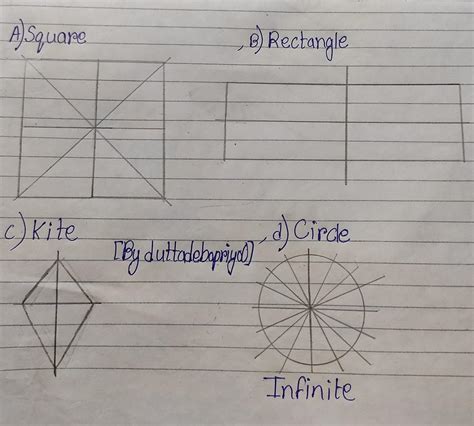 A) Square
B) Rectangle
c) Kite
[By duttadebapriya]
d) Circle
Infinite